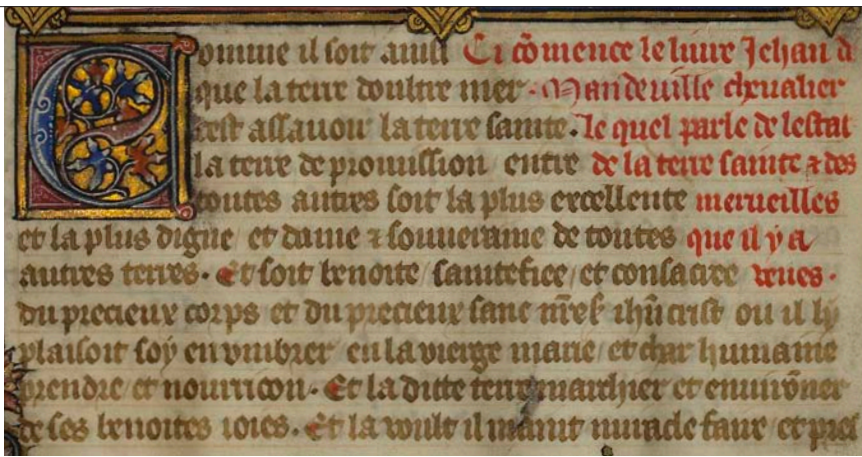 Comme il soit ainsi Ci cõmence le liure Jehan d
que la terre doultre mer. Mandeuille cheualier
cest assauoir la terre sainte. le quel parle de lestat
la terre de promission entre de la terre sainte ⁊ des
toutes autres soit la plus excellente merueilles
et la plus digne et dame ⁊ souueraine de toutes que il y a
autres terres. Et soit benoite / saintefiee / et consacree veues.
du precieux corps et du precieux sanc ihũcrist ou il ly
plaisoit soy enumbrer en la vierge marie / et char humaine
prendre / et nourricon. Et la ditte terre marchier et enuirõner
de ses benoites Et la voult il maint miracle faire et